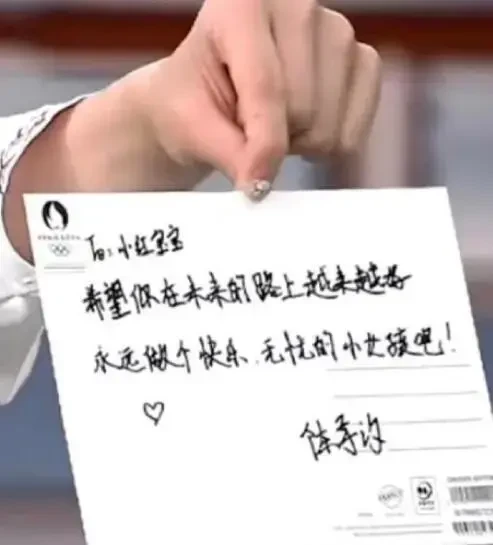 To: 小红宝宝
希望你在未来的路上越来越好
永远做个快乐、无忧的小女孩吧!